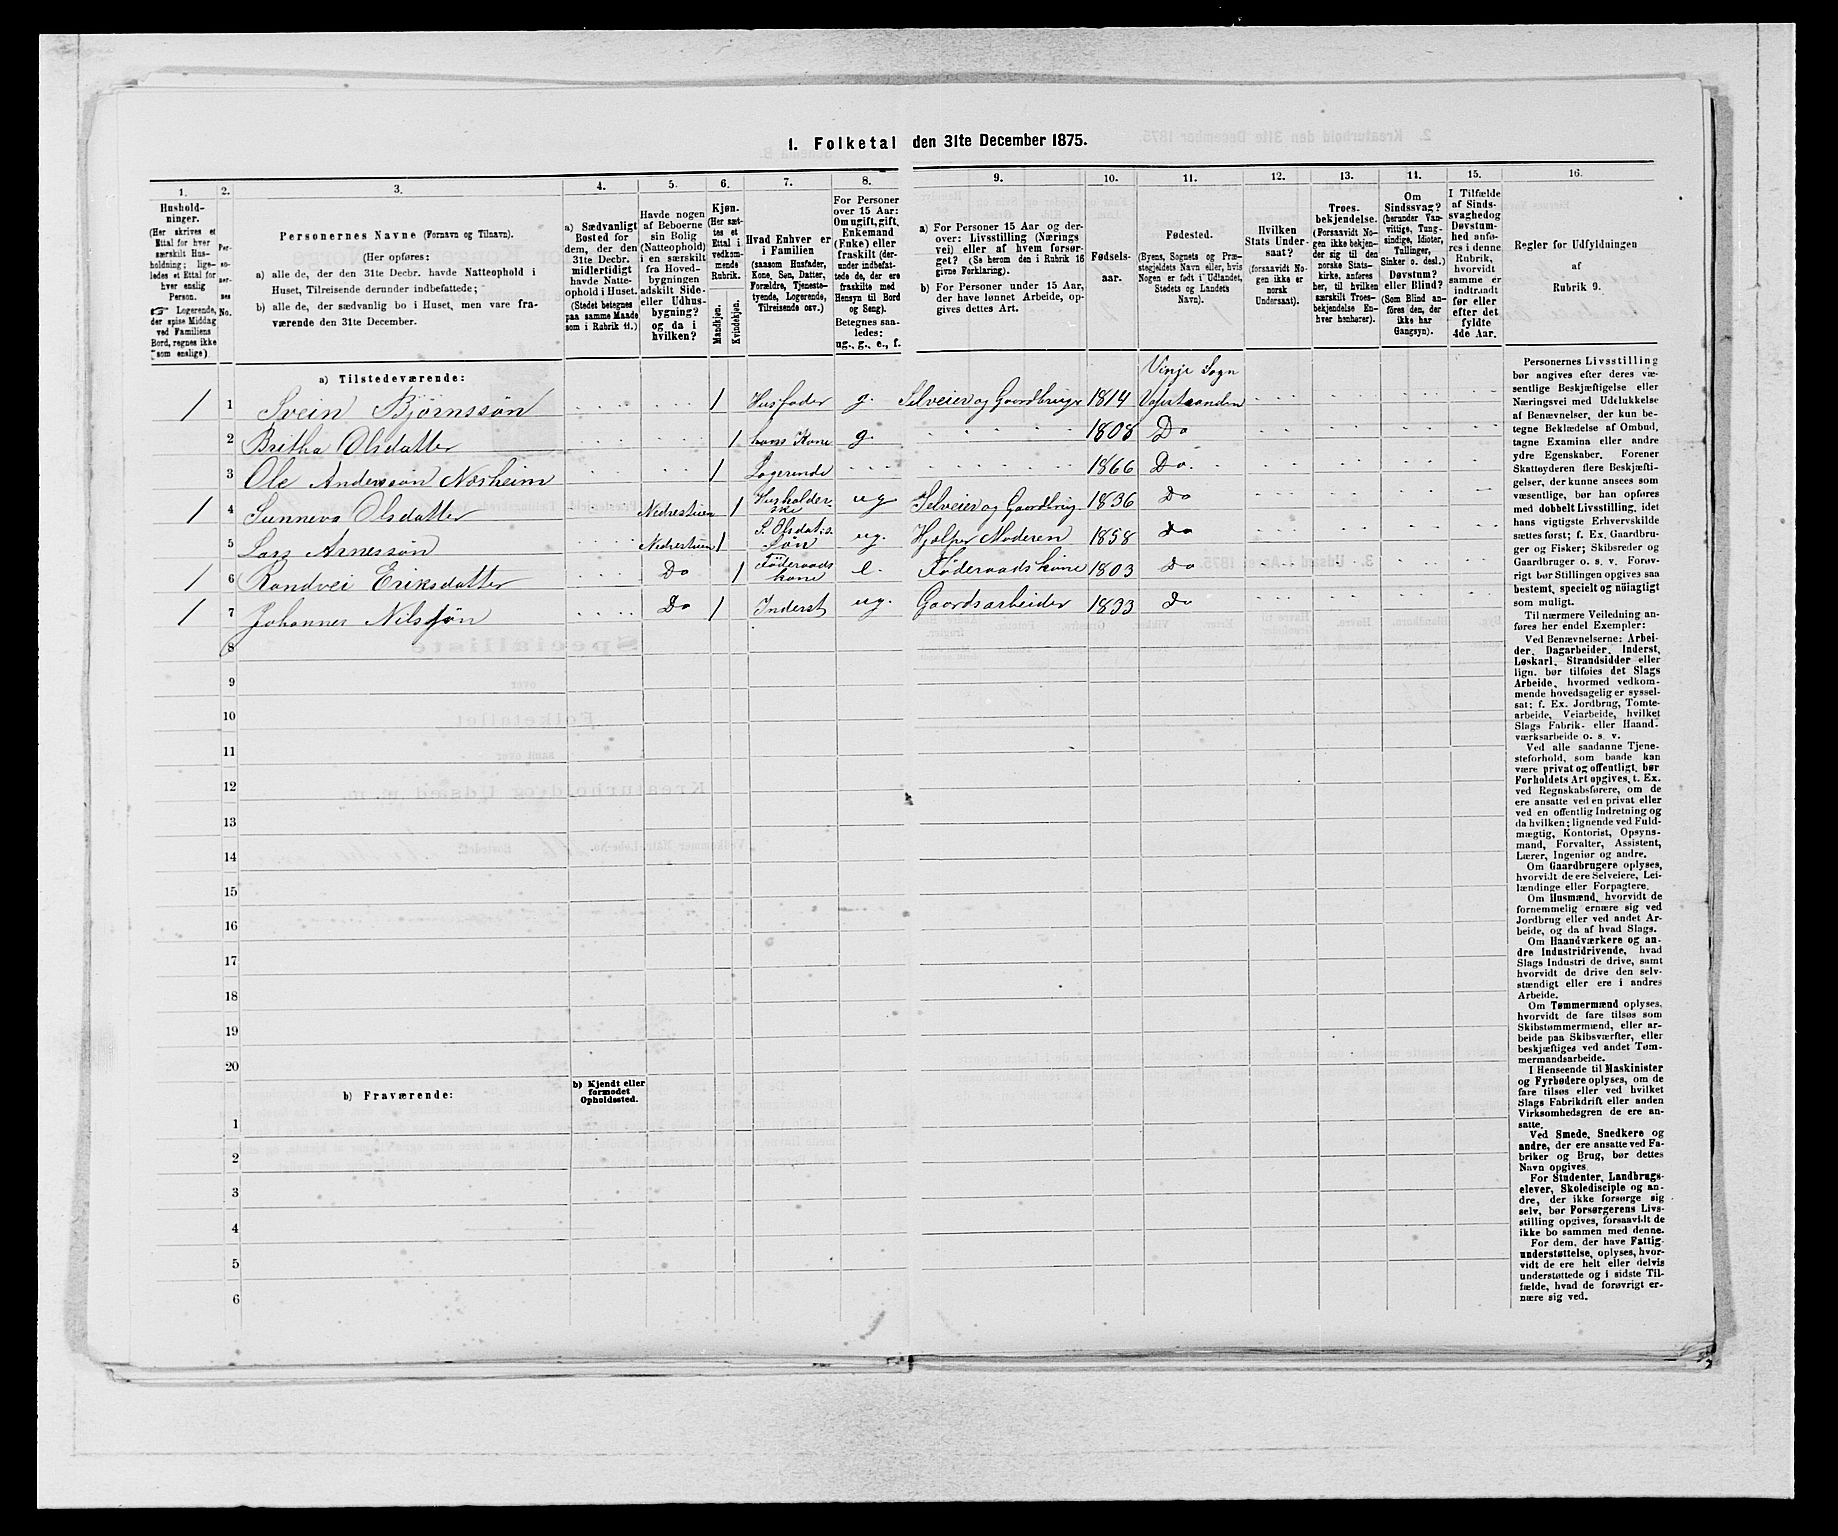 1. Folketal den 31te December 1875.
1.
2.
3.
4.
5.
6.
7.
8.
9.
10.
11.
12.
13.
14.
15.
16.
Hushold-
ninger.
(Her skrives et
Ettal for hver
særskilt Hus-
holdning; lige-
ledes et Ettal for
hver enslig
Person.
☞ Logerende,
der spise Middag
ved Familiens
Bord, regnes ikke
som enslige).
Per-
so-
ner-
nes
No.
Personernes Navne (Fornavn og Tilnavn).
(Her opføres:
a) alle de, der den 31te Decbr. havde Natteophold i
Huset, Tilreisende derunder indbefattede;
b) alle de, der sædvanlig bo i Huset, men vare fra-
værende den 31te December.
a) Sædvanligt
Bosted for
dem, der den
31te Decbr.
midlertidigt
havde Natte-
ophold i Huset.
(Stedet betegnes
paa samme Maade
som i Rubrik 11.)
Havde nogen
af Beboerne
sin Bolig
(Natteophold)
i en særskilt
fra Hoved-
bygningen
adskilt Side-
eller Udhus-
bygning?
og da i
hvilken?
Kjøn.
(Her sæt-
tes et
Ettal i
vedkom-
mende
Rubrik.
Mandkjøn.
Kvindekjøn.
Hvad Enhver er
i Familien
(saasom Husfader,
Kone, Søn, Datter,
Forældre, Tjeneste-
tyende, Logerende,
Tilreisende osv.)
For Personer
over 15 Aar:
Om ugift, gift,
Enkemand
(Enke) eller
fraskilt (der-
under indbefat-
tede de, der ere
fraskilte med
Hensyn til Bord
og Seng).
Betegnes saa-
ledes:
ug., g., e., f.
a) For Personer 15 Aar og der-
over: Livsstilling (Nærings
vei) eller af hvem forsør-
get? (Se herom den i Rubrik 16
givne Forklaring).
b) For Personer under 15 Aar,
der have lønnet Arbeide, op-
gives dettes Art.
Fødsels-
aar.
Fødested.
(Byens, Sognets og Præ-
stegjeldets Navn eller, hvis
Nogen er født i Udlandet,
Stedets og Landets
Navn).
Hvilken
Stats Under-
saat?
(forsaavidt No-
gen ikke er
norsk
Undersaat).
Troes-
bekjendelse.
(Forsaavidt No-
gen ikke bekjen-
der sig til den
norske Stats-
kirke, anføres
her, til hvilken
særskilt Troes-
bekjendelse En-
hver henhører).
Om
Sindssvag?
(herunder Van-
vittige, Tung-
sindige, Idioter,
Tullinger,
Sinker o. desl.)
Døvstum?
eller Blind?
(Som Blind an-
føres den, der
ikke har
Gangsyn).
I Tilfælde
af Sinds-
svaghed og
Døvstum-
hed anfø-
res i denne
Rubrik,
hvorvidt
samme er
indtraadt
før eller
efter det
fyldte
4de Aar.
Regler for Udfyldningen
af
Rubrik 9.
a) Tilstedeværende:
Vinje Sogn
1 1 Svein Bjørnssøn 1 Husfader g. Selveier og Gaardbruger 1814
2 Britha Olsdatter 1 hans Kone g. 1808 Do
3 Ole Anderssøn Norheim 1 Logerende 1866 Do.
1 4 Sunneva Olsdatter Nedrestuen 1 Husholder-
ske ug Selveier og Gaardbrug 1836 Do
5 Lars Arnessøn Nedrestuen 1 S. Olsdat.s.
Søn ug. Hjælper Moderen 1858 Do
1 6 Randvei Eriksdatter Do 1 Föderaads
kone e. Föderaadskone 1803 Do
1 7 Johannes Nilssøn Do 1 Inderst ug. Gaardsarbeider 1833 Do
8
9
10
11
12
13
14
15
16
17
18
19
20
b) Fraværende:
b) Kjendt eller
formodet
Opholdssted.
1
2
3
4
5
6
Personernes Livsstilling
bør angives efter deres væ-
sentlige Beskjæftigelse eller
Næringsvei med Udelukkelse
af Benævnelser, der kun be-
tegne Beklædelse af Ombud,
tagne Examina eller andre
ydre Egenskaber. Forener
Skatteyderen flere Beskjæfti-
gelser, der kunne ansees som
væsentlige, bør han opføres
med dobbelt Livsstilling, idet
hans vigtigste Erhvervskilde
sættes først; f. Ex. Gaardbru-
ger og Fisker; Skibsreder og
Gaardbruger o. s. v. Forøv-
rigt bør Stillingen opgives saa
bestemt, specielt og nøiagtigt
som muligt.
Til nærmere Veiledning an-
føres her endel Exempler:
Ved Benævnelserne: Arbei-
der, Dagarbeider, Inderst,
Løskarl, Strandsidder eller
lign. bør tilføies det Slags
Arbeide, hvormed vedkom-
mende hovedsagelig er syssel-
sat; f. Ex. Jordbrug, Tomte-
arbeide, Veiarbeide, hvilket
Slags Fabrik- eller Haand-
værksarbeide o. s. v.
Ved alle saadanne Tjene-
steforhold, som baade kan
være privat og offentligt, bør
Forholdets Art opgives, t. Ex.
ved Regnskabsførere, om de
ere ansatte ved en privat eller
ved en offentlig Indretning og
da hvilken; lignende ved Fuld-
mægtig, Kontorist, Opsyns-
mand, Forvalter, Assistent,
Lærer, Ingeniør og andre.
Om Gaardbrugere oplyses,
hvorvidt de ere Selveiere, Lei-
lændinge eller Forpagtere.
Om Husmænd, hvorvidt de
fornemmelig ernære sig ved
Jordbrug eller ved andet Ar-
beide, og da af hvad Slags.
Om Haandværkere og an-
dre Industridrivende, hvad
Slags Industri de drive, samt
hvorvidt de drive den selv-
stændigt eller ere i andres
Arbeide.
Om Tømmermænd oplyses,
hvorvidt de fare tilsøs som
Skibstømmermænd, eller ar-
beide paa Skibsværfter, eller
beskjæftiges ved andet Tøm-
mermandsarbeide.
I Henseende til Maskinister
og Fyrbødere oplyses, om de
fare tilsøs eller ved hvilket
Slags Fabrikdrift eller anden
Virksomhedsgren de ere an-
satte.
Ved Smede, Snedkere og
andre, der ere ansatte ved Fa-
briker og Brug, bør dettes
Navn opgives.
For Studenter, Landbrugs-
elever, Skoledisciple og an-
dre, der ikke forsørge sig
selv, bør Forsørgerens Livs-
stilling opgives, forsaavidt de
ikke bo sammen med denne.
For dem, der have Fattig-
understøttelse, oplyses, hvor-
vidt de ere helt eller delvis
understøttede og i sidste Til-
fælde, hvad de forøvrigt er-
nære sig ved.